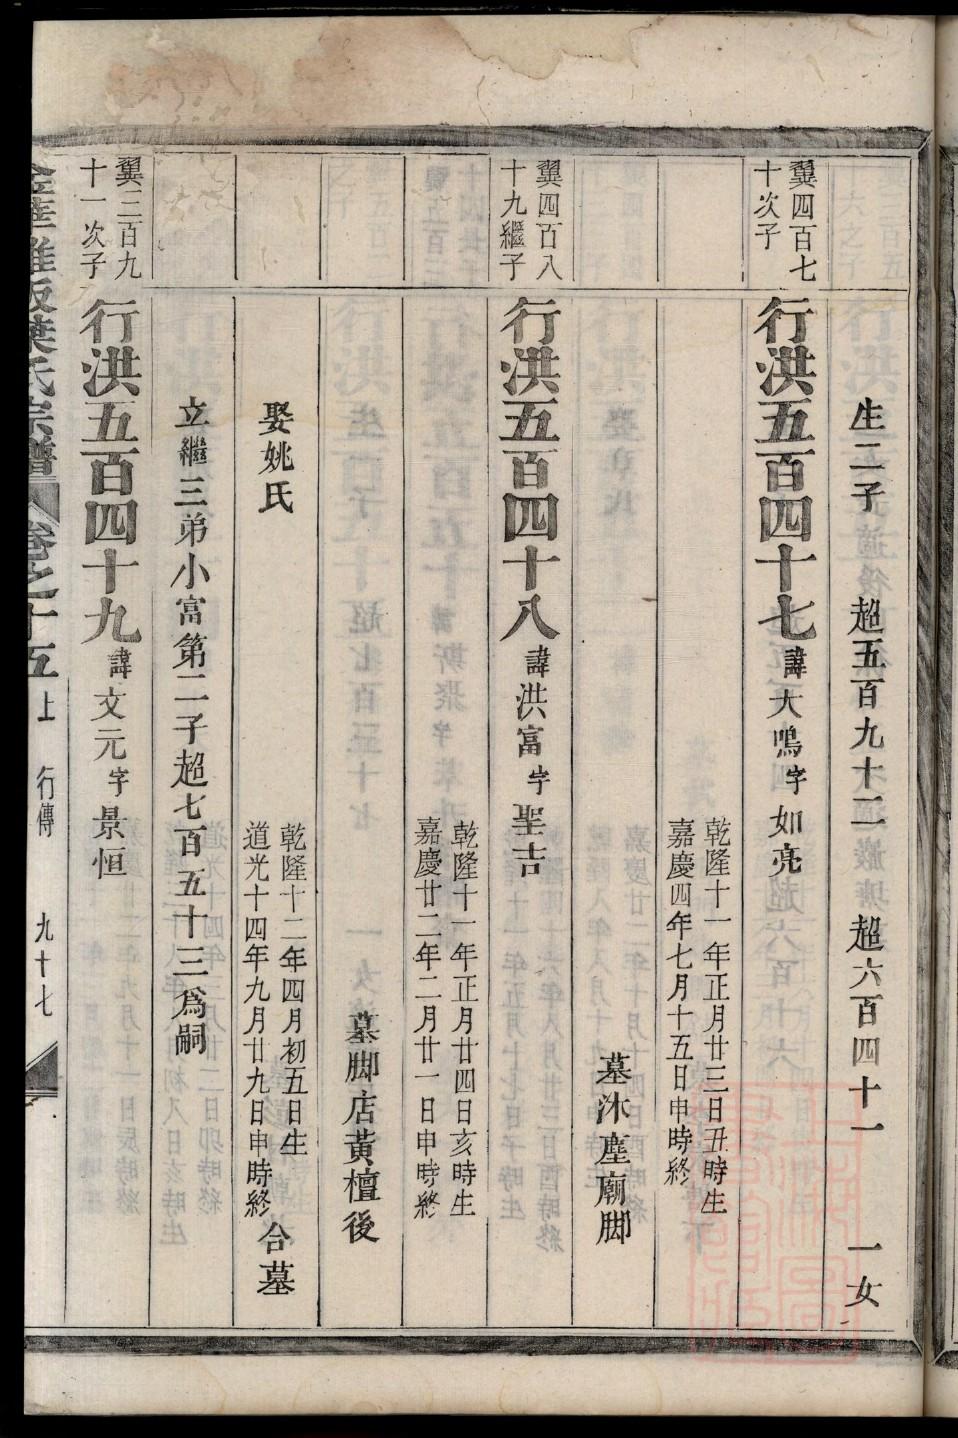 生二子　超五百九十二　超六百四十一　一女
翼四百七
十次子
行洪五百四十七 諱大鳴 字如亮
乾隆十一年正月廿三日丑時生
嘉慶四年七月十五日申時終
墓沐塵廟脚
翼四百八
十九繼子
行洪五百四十八 諱洪富 字聖吉
乾隆十一年正月廿四日亥時生
嘉慶廿二年二月廿一日申時終
墓脚店黃檀後
娶姚氏
乾隆十二年四月初五日生
道光十四年九月廿九日申時終
合墓
立繼三弟小富第二子超七百五十三為嗣
翼三百九
十一次子
行洪五百四十九 諱文元 字景恒
葉氏宗譜 卷之十五上 行傳 九十七